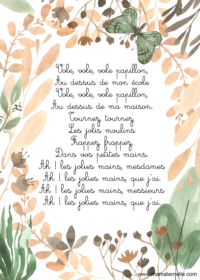 Vole, vole, vole papillon,
Au dessus de mon école
Vole, vole, vole papillon,
Au dessus de ma maison.
Tournez, tournez,
Les jolis moulins
Frappez, frappez,
Dans vos petites mains.
Ah ! les jolies mains, mesdames
Ah ! les jolies mains, que j'ai.
Ah ! les jolies mains, messieurs
Ah ! les jolies mains, que j'ai.